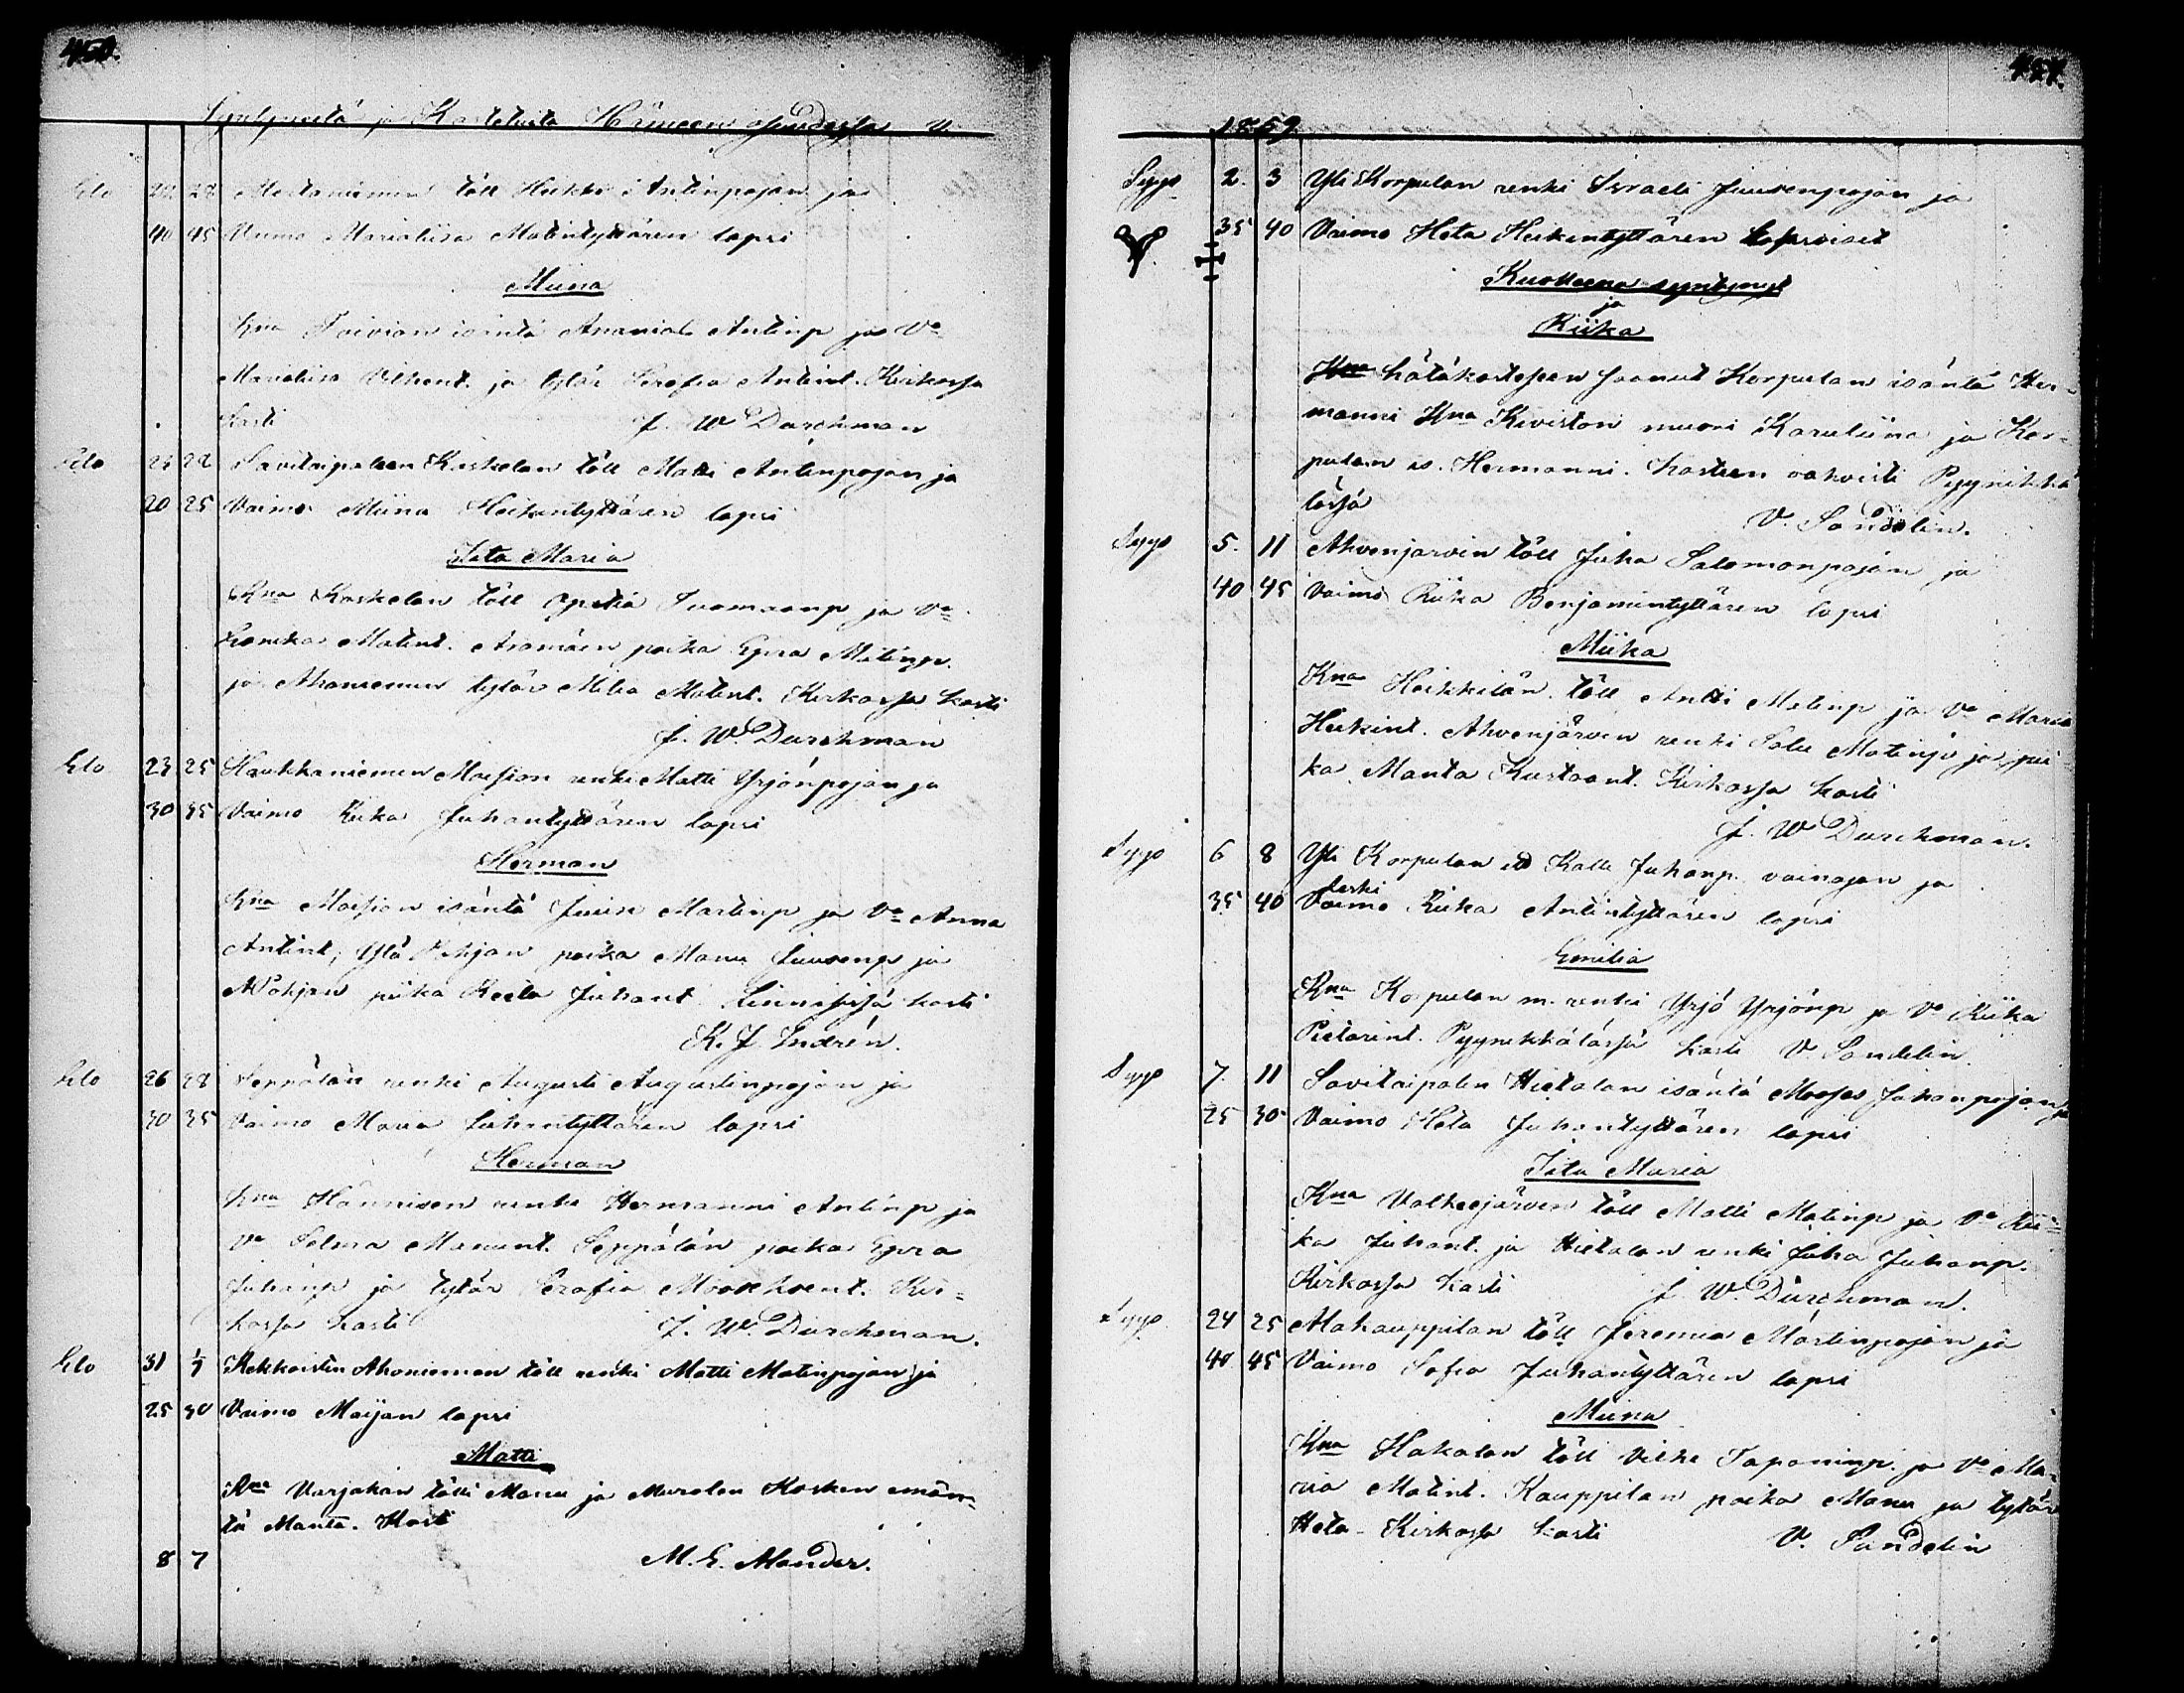 450.
Syntyneitä ja Kastetuita Hämeen
Elo 22 28 Mettäniemen töll Heikki Antinpojan ja
40 45 Vaimo Marialiisa Matintyttären lapsi
Miina
Kna Toivian isäntä Ananias Antinp ja Va
Marialiisa Vilhent. ja tytär Serafia Antint. Kirkossa
Kasti J. W Durchman
Elo 22 Savitaipaleen Koskelan töll Matti Antinpojan ja
20 25 Vaimo Miina Heikintyttären lapsi
Iita Maria
Kna Koskelan töll Tuomaanp ja Va
Matint. Aromäen poika Epra Matinp.
ja Ahoniemen tytär Milia Matint. Kirkossa kasti
J. W. Durchman
Elo 23 25 Haukkaniemen Moision renki Matti Yrjönpojan ja
30 35 Vaimo Riika Juhantyttären lapsi
Herman
Kna Moision isäntä Juuse Martinp ja Va Anna
Antint; Ylä Pohjan poika Manu Juusenp ja
A Pohjan piika Reeta Juhant Linnassa kasti
K. J. Indrén.
Elo 26 28 Seppälän renki Augusti Augustinpojan ja
30 35 Vaimo Maria Juhantyttären lapsi
Herman
Kna Hännisen renki Hermanni Antinp ja
Va Selma Manunt. Seppälän poika Epra
Juhanp ja tytär Serafia Kir-
kossa kasti J. W. Durchman.
Elo 31 1/7 Kekkoistin Ahoniemen töll renki Matti Matinpojan ja
25 30 Vaimo Maijan lapsi
Matti
Kna Varjakan tölli Manu ja Murolen Kosken emän-
tä Manta. Kast
8 7 M. E. Mander.
451.
1859
Syys 2. 3 Yli Korpulan renki Israeli Juusenpojan ja
35 40 Vaimo Heta Heikintyttären kaksoiset
Kuolleena syntynyt
ja
Riika
Kna hätäkasteseen saanut Korpulan isäntä Her-
manni Kna Kiviston muori Karuliina ja Kor-
pulan is. Hermanni. Kasteen vahvisti Pyynikkä
lässä V. Sandelin.
Syys 5. 11 Ahvenjärvin töll Juha Salomonpojan ja
40 45 Vaimo Riika Benjamintyttären lapsi
Miika
Kna Heikkilän töll Antti Matinp ja Va Maria
Heikint. Ahvenjärven renki Salu Matinp ja pii-
ka Manta Kustaant. Kirkossa kasti
J. W Durchman.
Syys 6 8 Yli Korpulan Kalle Juhanp. vainajan ja
leski
35 40 Vaimo Riika Antintyttären lapsi
Emilia
Kna Korpulan m. renki Yrjö Yrjönp ja Va Riika
Pietarint. Pyynikkälässä kasti V Sandelin
Syys 7. 11 Savitaipalen Hietalan isäntä Mooses Juhanpojan ja
25 30 Vaimo Heta Juhantyttären lapsi
Iita Maria
Kna Valkeejärven töll Matti Matinp ja Va Rii-
ka Juhant. ja Hietalan renki Juha Juhanp.
Kirkossa kasti J. W. Durchman.
Syys 24 25 Alakauppilan töll Jeremia Martinpojan ja
40 45 Vaimo Sofia Juhantyttären lapsi
Miina
Kna Hakalan töll Vilhe Tapaninp. ja Va Ma-
ria Matint. Kauppilan poika Manu ja tytär
Heta Kirkossa kasti V. Sandelin